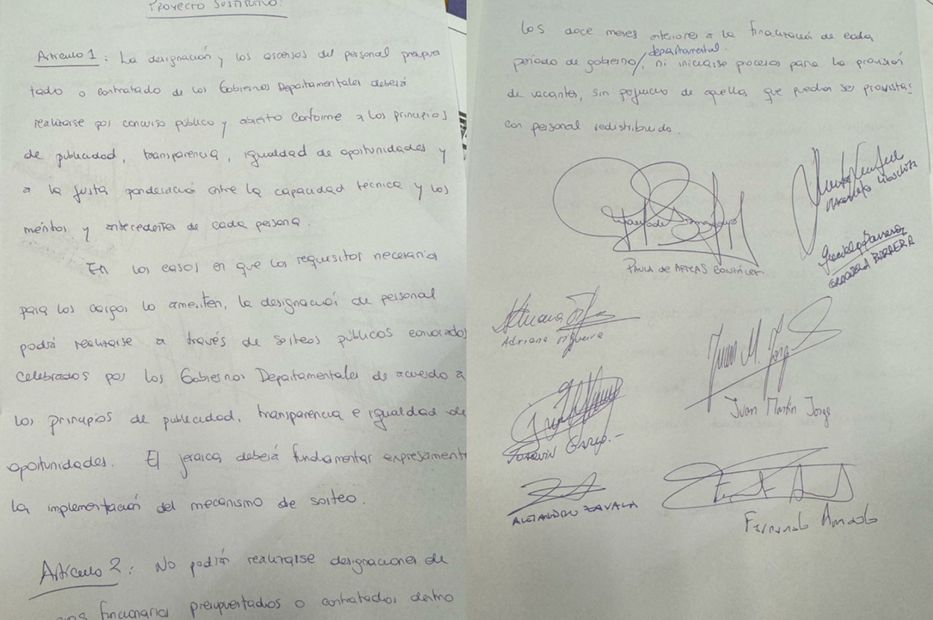 PROYECTO SUSTITUTIVO:
Artículo 1: La designación y los ascensos del personal presupues
tado o contratado de los Gobiernos Departamentales deberá
realizarse por concurso público y abierto conforme a los principios
de publicidad, transparencia, igualdad de oportunidades y
a la justa ponderación entre la capacidad técnica y los
méritos y antecedentes de cada persona.
En los casos en que los requisitos necesarios
para los cargos lo ameriten, la designación de personal
podrá realizarse a través de sorteos públicos convocados
celebrados por los Gobiernos Departamentales de acuerdo a
los principios de publicidad, transparencia e igualdad de
oportunidades. El jerarca deberá fundamentar expresamente
la implementación del mecanismo de sorteo.
Artículo 2: No podrán realizarse designaciones de
funcionarios presupuestados o contratados dentro
los doce meses anteriores a la finalización de cada
período de gobierno departamental, ni iniciarse procesos para la provisión
de vacantes, sin perjuicio de aquellas que puedan ser provistas
con personal redistribuido.
PAULA DE ARMAS
GRACIELA BARRERA
Adriana
Juan M. Jorge
Juan Martín Jorge
JOAQUÍN
ALEJANDRO ZAVALA
Fernando Amado